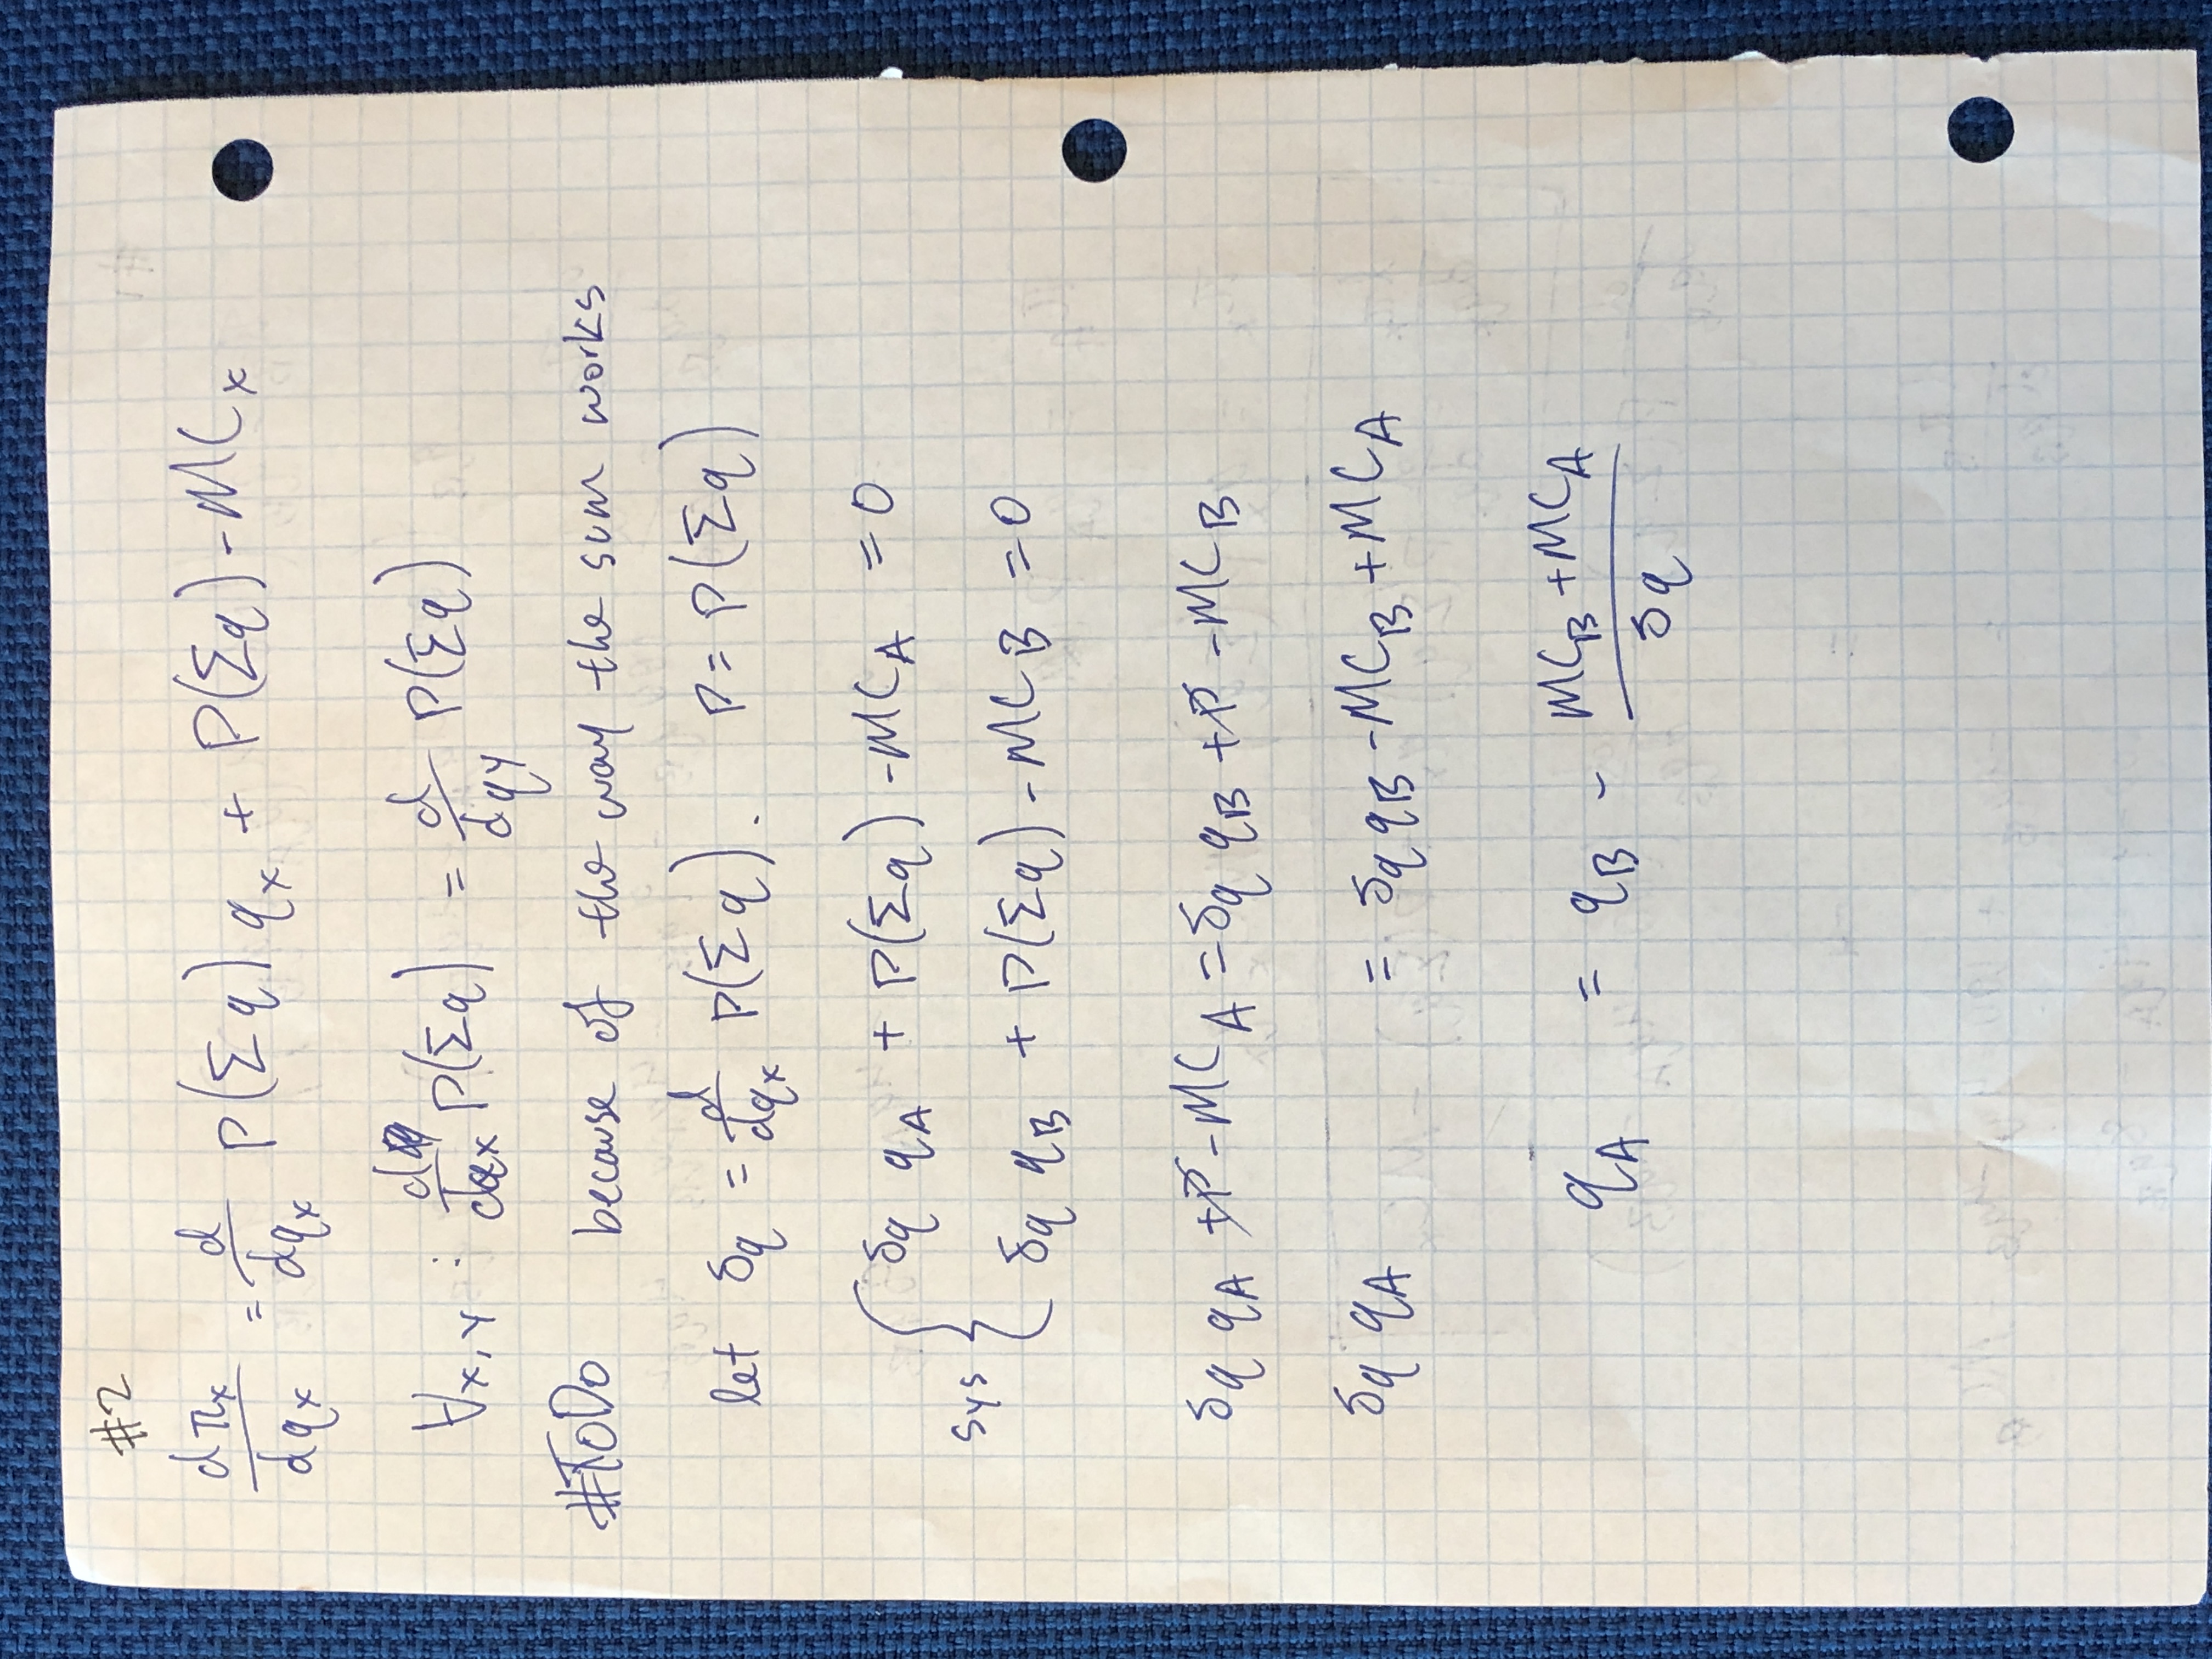 #2
dπx/dqx = d/dqx P(Σq) qx + P(Σq) - MCx
∀x,y : d/dqx P(Σq) = d/dqy P(Σq)
#ToDo because of the way the sum works
let δq = d/dqx P(Σq). P = P(Σq)
sys { δq qA + P(Σq) - MCA = 0
δq qB + P(Σq) - MCB = 0
δq qA + P - MCA = δq qB + P - MCB
δq qA = δq qB - MCB + MCA
qA = qB - (MCB + MCA)/δq